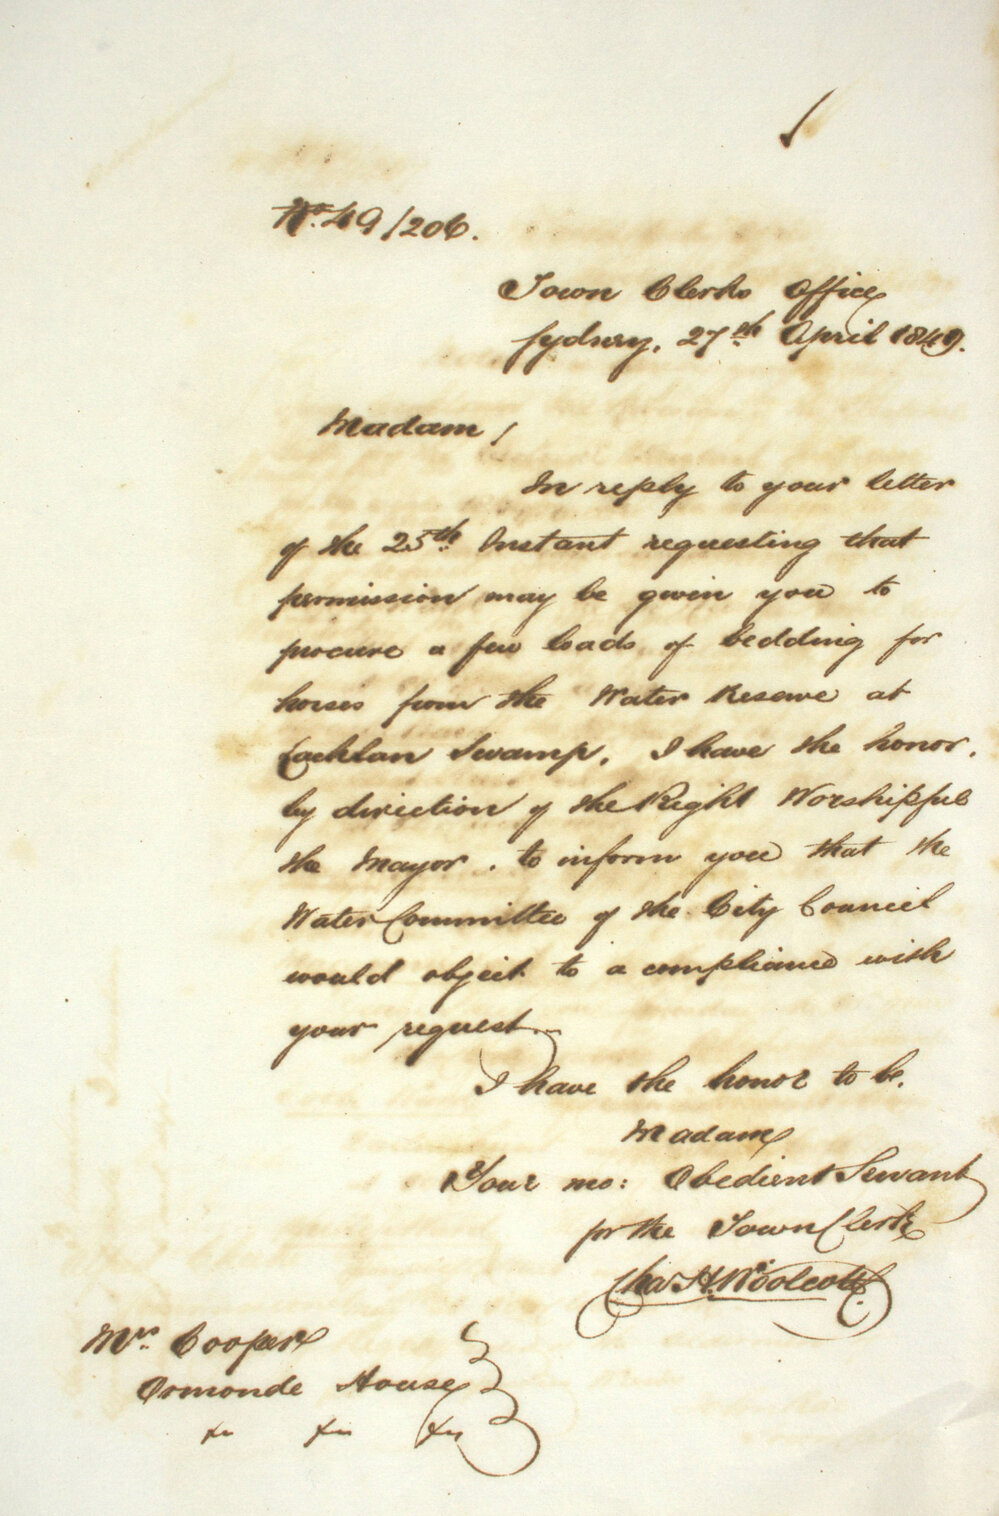 No. 49/206.
Town Clerks Office
Sydney, 27th April 1849.
Madam,
In reply to your letter
of the 25th Instant requesting that
permission may be given you to
procure a few loads of bedding for
horses from the Water Reserve at
Lachlan Swamp, I have the honor,
by direction of the Right Worshipful
the Mayor, to inform you that the
Water Committee of the City Council
would object to a compliance with
your request.
I have the honor to be,
Madam
Your mo: Obedient Servant
for the Town Clerk
Chas H. Woolcott
Mrs. Cooper
Ormonde House
&c &c &c